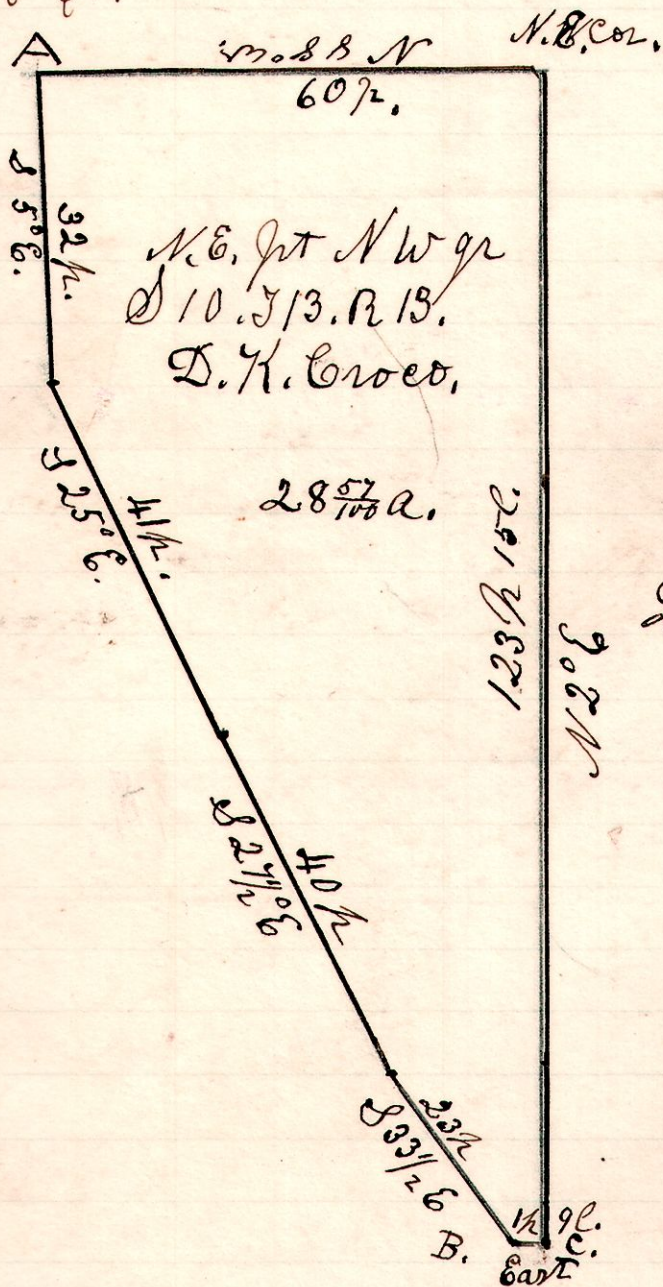 A
N 88 W
N.E. cor.
60 p.
S 5° E.
32 p.
N.E. pt N W qr
S 10. T 13. R 13.
D. K. Croco.
28 57/100 a.
S 25° E.
41 p.
123 p 15 l.
N 2° E
S 27 1/2° E
40 p
S 33 1/2 E
23 p
1 p 9 l.
B.
C.
East